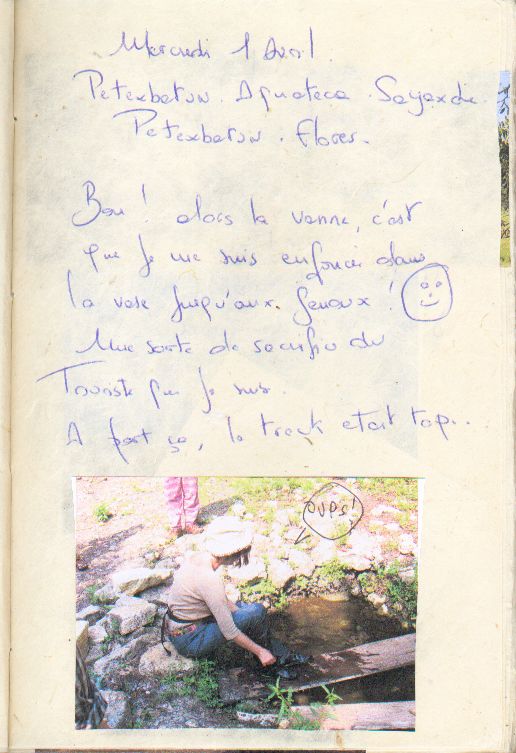 Mercredi 1 Avril.
Petexbatun. Aguateca. Sayaxche.
Petexbatun. Flores.
Bon! alors la vanne, c'est
que je me suis enfoncée dans
la vase jusqu'aux genoux!
Une sorte de sacrifice du
Touriste que je suis.
A part ça, le treck etait top..
OUPS!